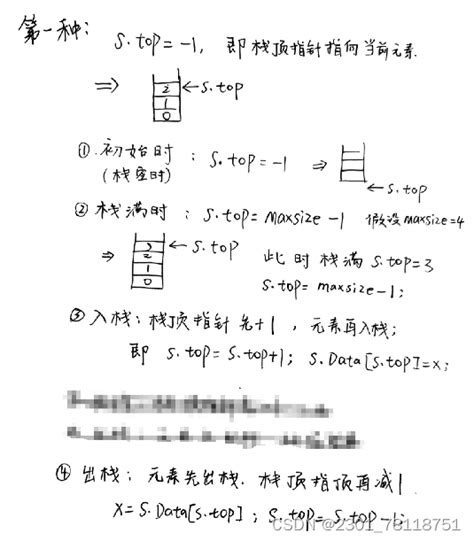 第一种：
S.top=-1, 即栈顶指针指向当前元素.
⇒ 2 ←S.top
1
0
① 初始时 : S.top=-1 ⇒
(栈空时) ←S.top
② 栈满时 : S.top=maxsize-1 假设maxsize=4
⇒ 3 ←S.top 此时栈满 S.top=3
2 S.top=maxsize-1;
1
0
③ 入栈：栈顶指针先+1, 元素再入栈;
即 S.top=S.top+1; S.Data[S.top]=x;
④ 出栈：元素先出栈. 栈顶指顶再减1
X=S.Data[S.top]; S.top=S.top-1;
CSDN @2301_78118751